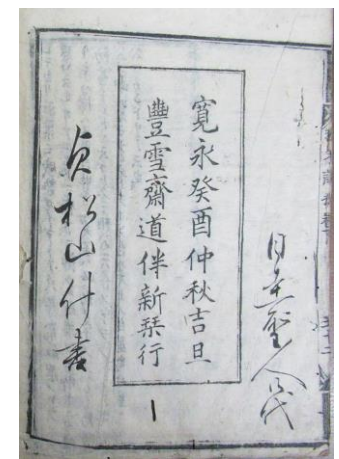 日聖人代
寛永癸酉仲秋吉旦
豐雪齋道伴新栞行
貞松山什書